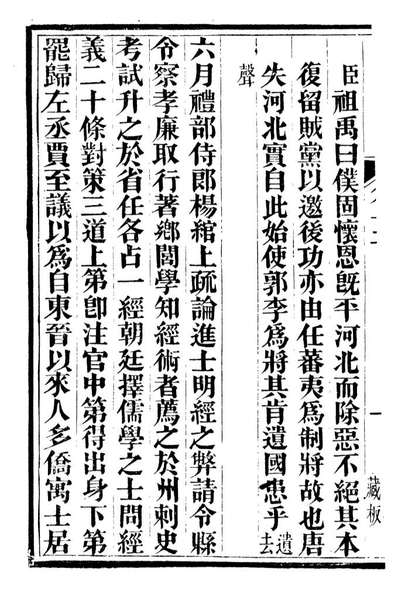 一
藏板
臣祖禹曰僕固懷恩旣平河北而除惡不絕其本
復留賊黨以邀後功亦由任蕃夷爲制將故也唐
失河北實自此始使郭李爲將其肯遺國患乎遺去
聲
六月禮部侍郎楊綰上疏論進士明經之弊請令縣
令察孝廉取行著鄉閭學知經術者薦之於州刺史
考試升之於省任各占一經朝廷擇儒學之士問經
義二十條對策三道上第卽注官中第得出身下第
罷歸左丞賈至議以爲自東晉以來人多僑寓士居